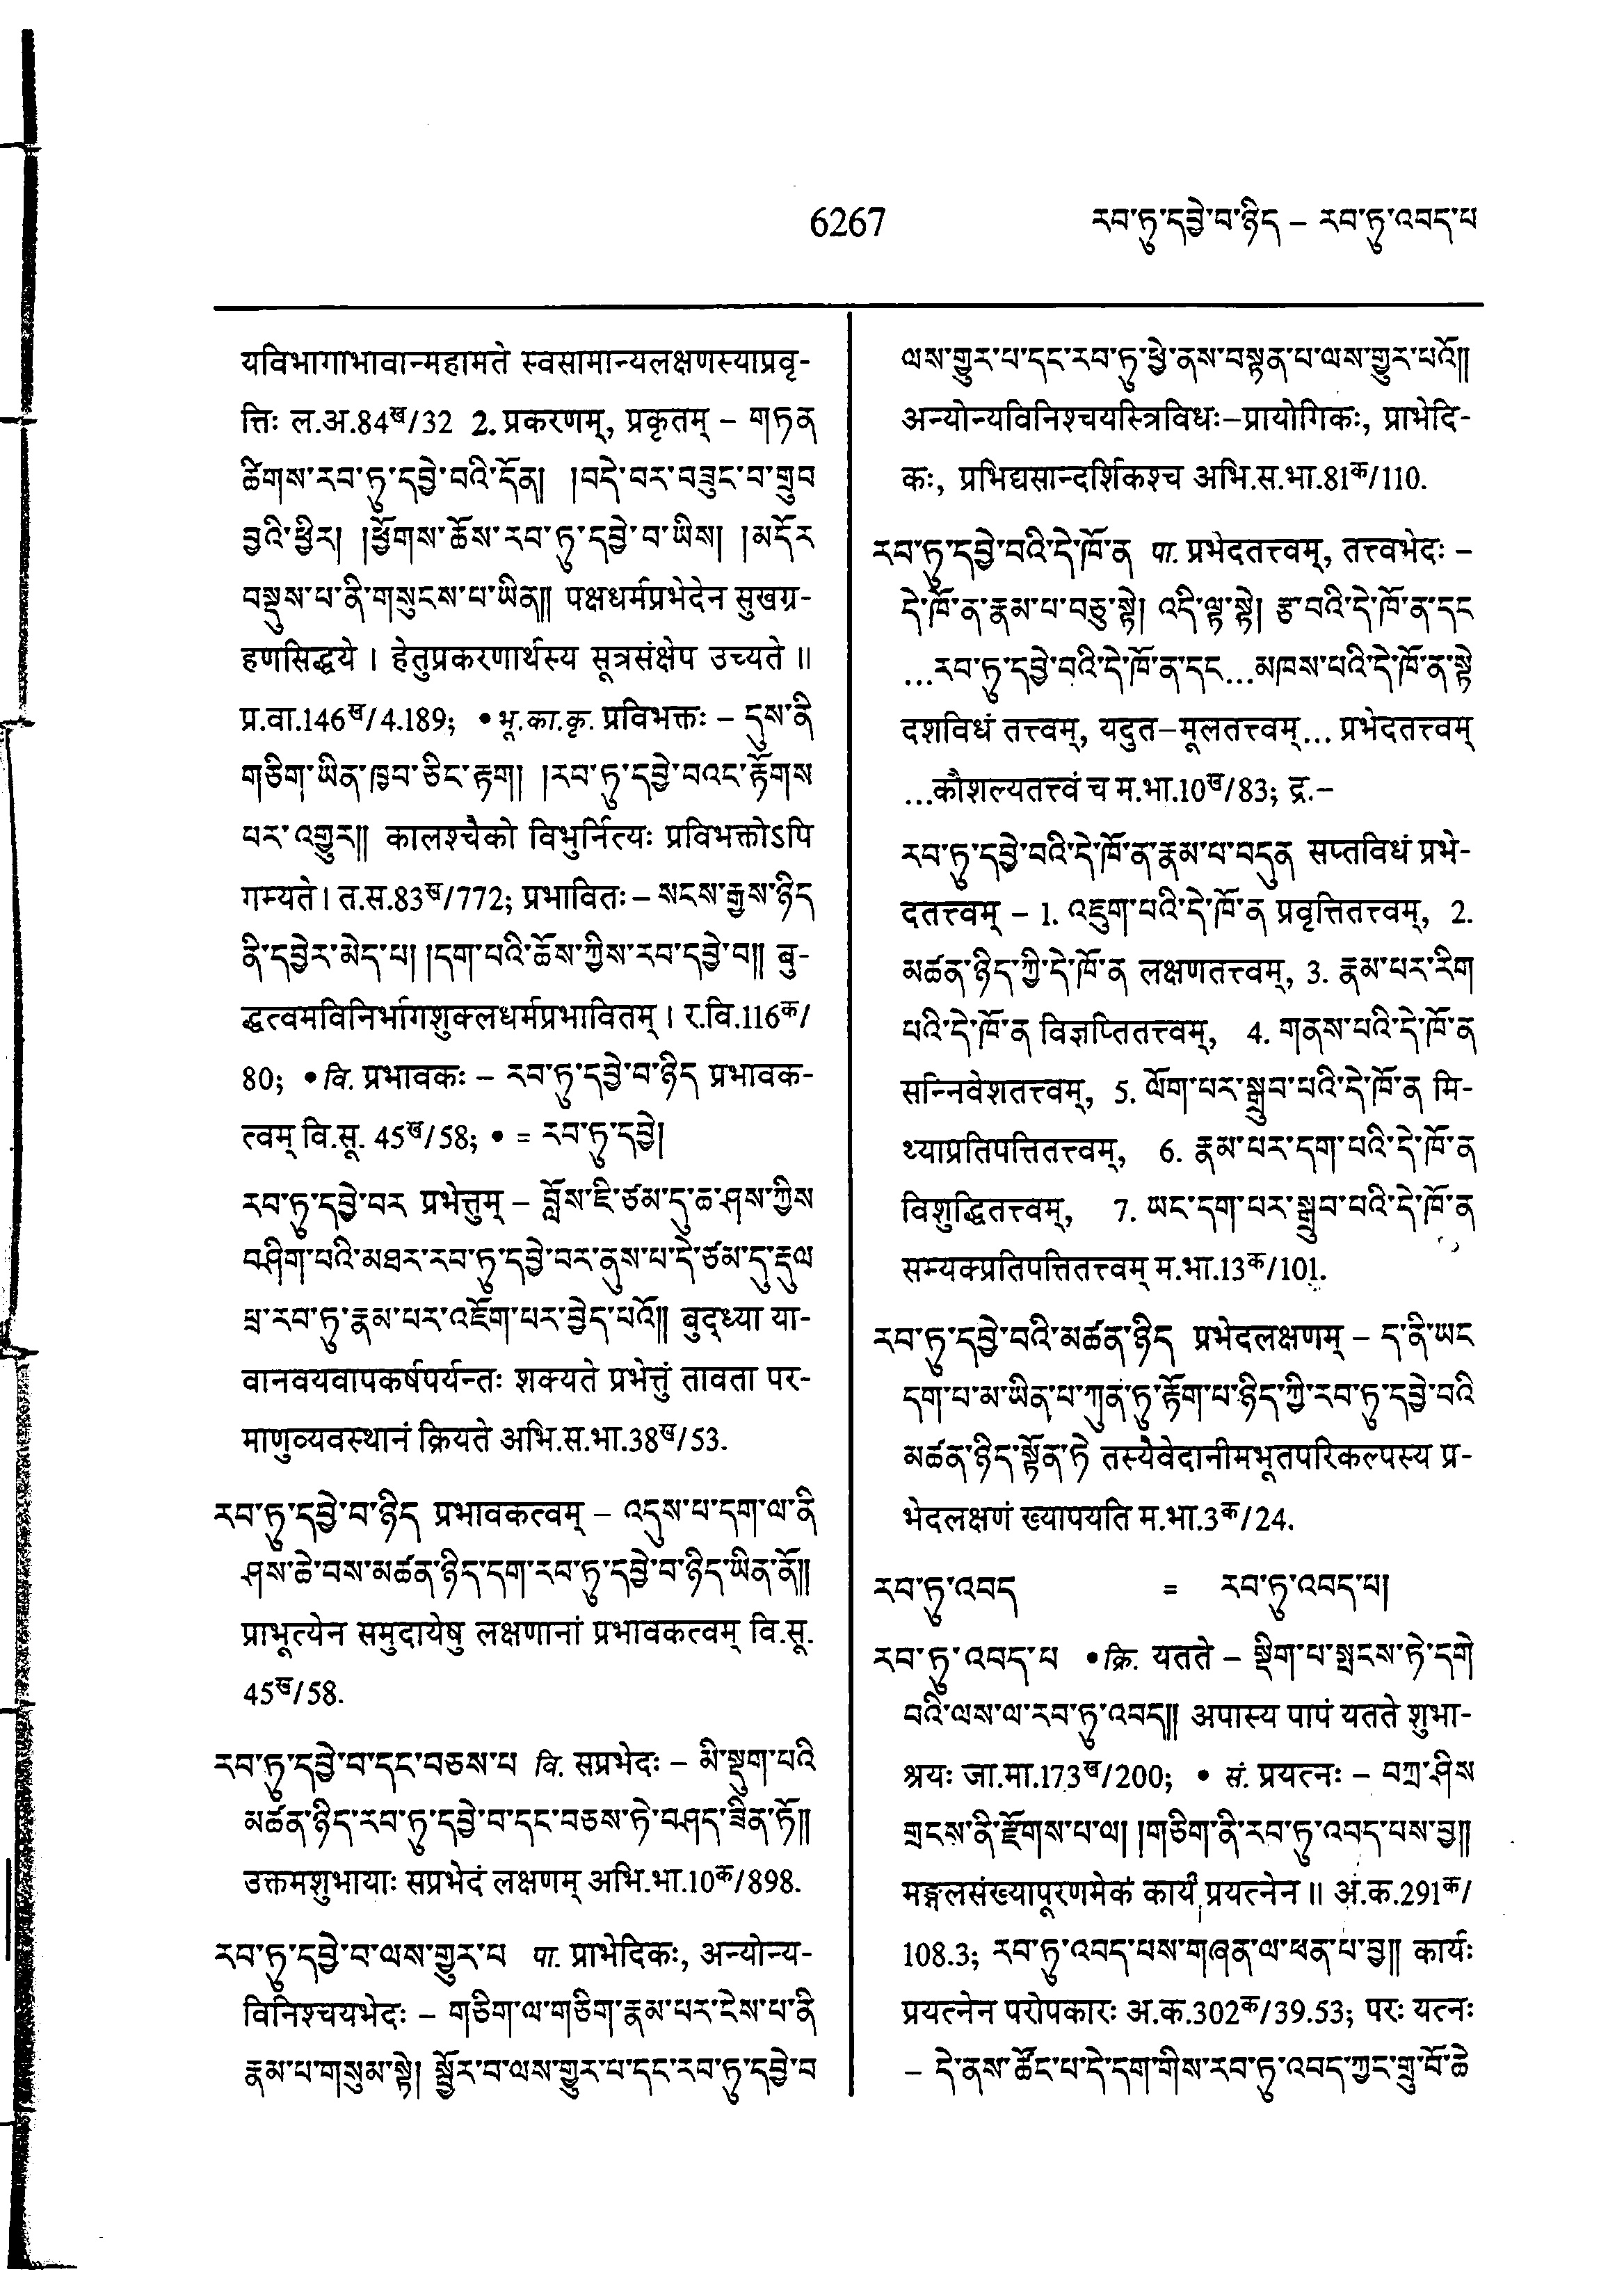 6267
རབ་ཏུ་དབྱེ་བ་ཉིད – རབ་ཏུ་འབད་པ
यविभागाभावान्महामते स्वसामान्यलक्षणस्याप्रवृ-
त्तिः ल.अ.84ख/32 2. प्रकरणम्, प्रकृतम् – གཏན
ཚིགས་རབ་ཏུ་དབྱེ་བའི་དོན། །བདེ་བར་བཟུང་བ་གྲུབ
བྱའི་ཕྱིར། །ཕྱོགས་ཆོས་རབ་ཏུ་དབྱེ་བ་ཡིས། །མདོར
བསྡུས་པ་ནི་གསུངས་པ་ཡིན།། पक्षधर्मप्रभेदेन सुखग्र-
हणसिद्धये । हेतुप्रकरणार्थस्य सूत्रसंक्षेप उच्यते ॥
प्र.वा.146ख/4.189; • भू.का.कृ. प्रविभक्तः – དུས་ནི
གཅིག་ཡིན་ཁྱབ་ཅིང་རྟག། །རབ་ཏུ་དབྱེ་བའང་རྟོགས
པར་འགྱུར།། कालश्चैको विभुर्नित्यः प्रविभक्तोऽपि
गम्यते । त.स.83ख/772; प्रभावितः – སངས་རྒྱས་ཉིད
ནི་དབྱེར་མེད་པ། །དག་པའི་ཆོས་ཀྱིས་རབ་དབྱེ་བ།། बु-
द्धत्वमविनिर्भागशुक्लधर्मप्रभावितम् । र.वि.116क/
80; • वि. प्रभावकः – རབ་ཏུ་དབྱེ་བ་ཉིད प्रभावक-
त्वम् वि.सू. 45ख/58; • = རབ་ཏུ་དབྱེ།
རབ་ཏུ་དབྱེ་བར प्रभेत्तुम् – བློས་ཇི་ཙམ་དུ་ཆ་ཤས་ཀྱིས
བཤིག་པའི་མཐར་རབ་ཏུ་དབྱེ་བར་ནུས་པ་དེ་ཙམ་དུ་རྡུལ
ཕྲ་རབ་ཏུ་རྣམ་པར་འཇོག་པར་བྱེད་པའོ།། बुद्ध्या या-
वानवयवापकर्षपर्यन्तः शक्यते प्रभेत्तुं तावता पर-
माणुव्यवस्थानं क्रियते अभि.स.भा.38ख/53.
རབ་ཏུ་དབྱེ་བ་ཉིད प्रभावकत्वम् – འདུས་པ་དག་ལ་ནི
ཤས་ཆེ་བས་མཚན་ཉིད་དག་རབ་ཏུ་དབྱེ་བ་ཉིད་ཡིན་ནོ།།
प्राभूत्येन समुदायेषु लक्षणानां प्रभावकत्वम् वि.सू.
45ख/58.
རབ་ཏུ་དབྱེ་བ་དང་བཅས་པ वि. सप्रभेदः – མི་སྡུག་པའི
མཚན་ཉིད་རབ་ཏུ་དབྱེ་བ་དང་བཅས་ཏེ་བཤད་ཟིན་ཏོ།།
उक्तमशुभायाः सप्रभेदं लक्षणम् अभि.भा.10क/898.
རབ་ཏུ་དབྱེ་བ་ལས་གྱུར་པ पा. प्राभेदिकः, अन्योन्य-
विनिश्चयभेदः – གཅིག་ལ་གཅིག་རྣམ་པར་ངེས་པ་ནི
རྣམ་པ་གསུམ་སྟེ། སྦྱོར་བ་ལས་གྱུར་པ་དང་རབ་ཏུ་དབྱེ་བ
ལས་གྱུར་པ་དང་རབ་ཏུ་ཕྱེ་ནས་བསྟན་པ་ལས་གྱུར་པའོ།།
अन्योन्यविनिश्चयस्त्रिविधः–प्रायोगिकः, प्राभेदि-
कः, प्रभिद्यसान्दर्शिकश्च अभि.स.भा.81क/110.
རབ་ཏུ་དབྱེ་བའི་དེ་ཁོ་ན पा. प्रभेदतत्त्वम्, तत्त्वभेदः –
དེ་ཁོ་ན་རྣམ་པ་བཅུ་སྟེ། འདི་ལྟ་སྟེ། རྩ་བའི་དེ་ཁོ་ན་དང
...རབ་ཏུ་དབྱེ་བའི་དེ་ཁོ་ན་དང...མཁས་པའི་དེ་ཁོ་ན་སྟེ
दशविधं तत्त्वम्, यदुत–मूलतत्त्वम्... प्रभेदतत्त्वम्
...कौशल्यतत्त्वं च म.भा.10ख/83; द्र.–
རབ་ཏུ་དབྱེ་བའི་དེ་ཁོ་ན་རྣམ་པ་བདུན सप्तविधं प्रभे-
दतत्त्वम् – 1. འཇུག་པའི་དེ་ཁོ་ན प्रवृत्तितत्त्वम्, 2.
མཚན་ཉིད་ཀྱི་དེ་ཁོ་ན लक्षणतत्त्वम्, 3. རྣམ་པར་རིག
པའི་དེ་ཁོ་ན विज्ञप्तितत्त्वम्, 4. གནས་པའི་དེ་ཁོ་ན
सन्निवेशतत्त्वम्, 5. ལོག་པར་སྒྲུབ་པའི་དེ་ཁོ་ན मि-
थ्याप्रतिपत्तितत्त्वम्, 6. རྣམ་པར་དག་པའི་དེ་ཁོ་ན
विशुद्धितत्त्वम्, 7. ཡང་དག་པར་སྒྲུབ་པའི་དེ་ཁོ་ན
सम्यक्प्रतिपत्तितत्त्वम् म.भा.13क/101.
རབ་ཏུ་དབྱེ་བའི་མཚན་ཉིད प्रभेदलक्षणम् – ད་ནི་ཡང
དག་པ་མ་ཡིན་པ་ཀུན་ཏུ་རྟོག་པ་ཉིད་ཀྱི་རབ་ཏུ་དབྱེ་བའི
མཚན་ཉིད་སྟོན་ཏེ तस्यैवेदानीमभूतपरिकल्पस्य प्र-
भेदलक्षणं ख्यापयति म.भा.3क/24.
རབ་ཏུ་འབད = རབ་ཏུ་འབད་པ།
རབ་ཏུ་འབད་པ • क्रि. यतते – སྡིག་པ་སྤངས་ཏེ་དགེ
བའི་ལས་ལ་རབ་ཏུ་འབད།། अपास्य पापं यतते शुभा-
श्रयः जा.मा.173ख/200; • सं. प्रयत्नः – བཀྲ་ཤིས
གྲངས་ནི་རྫོགས་པ་ལ། །གཅིག་ནི་རབ་ཏུ་འབད་པས་བྱ།།
मङ्गलसंख्यापूरणमेकं कार्यं प्रयत्नेन ॥ अ.क.291क/
108.3; རབ་ཏུ་འབད་པས་གཞན་ལ་ཕན་པ་བྱ།། कार्यः
प्रयत्नेन परोपकारः अ.क.302क/39.53; परः यत्नः
– དེ་ནས་ཚོང་པ་དེ་དག་གིས་རབ་ཏུ་འབད་ཀྱང་གྲུ་བོ་ཆེ